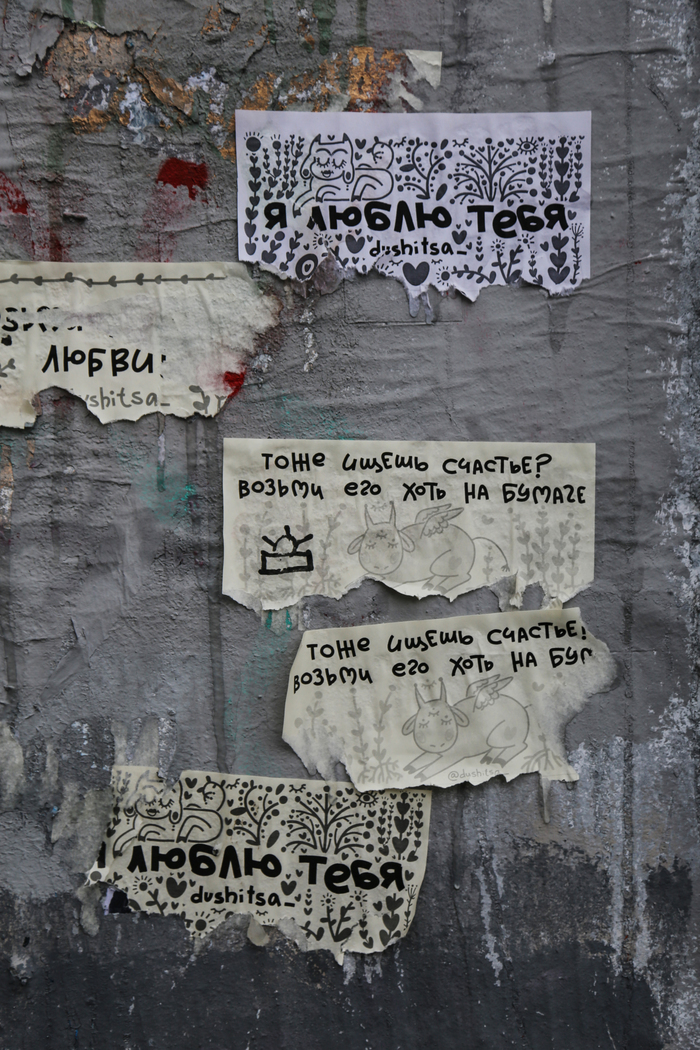 Я ЛЮБЛЮ ТЕБЯ
dushitsa_
ЛЮБВИ
ushitsa_
ТОЖЕ ИЩЕШЬ СЧАСТЬЕ?
ВОЗЬМИ ЕГО ХОТЬ НА БУМАГЕ
ТОЖЕ ИЩЕШЬ СЧАСТЬЕ?
ВОЗЬМИ ЕГО ХОТЬ НА БУМ
@dushitsa_
Я ЛЮБЛЮ ТЕБЯ
dushitsa_